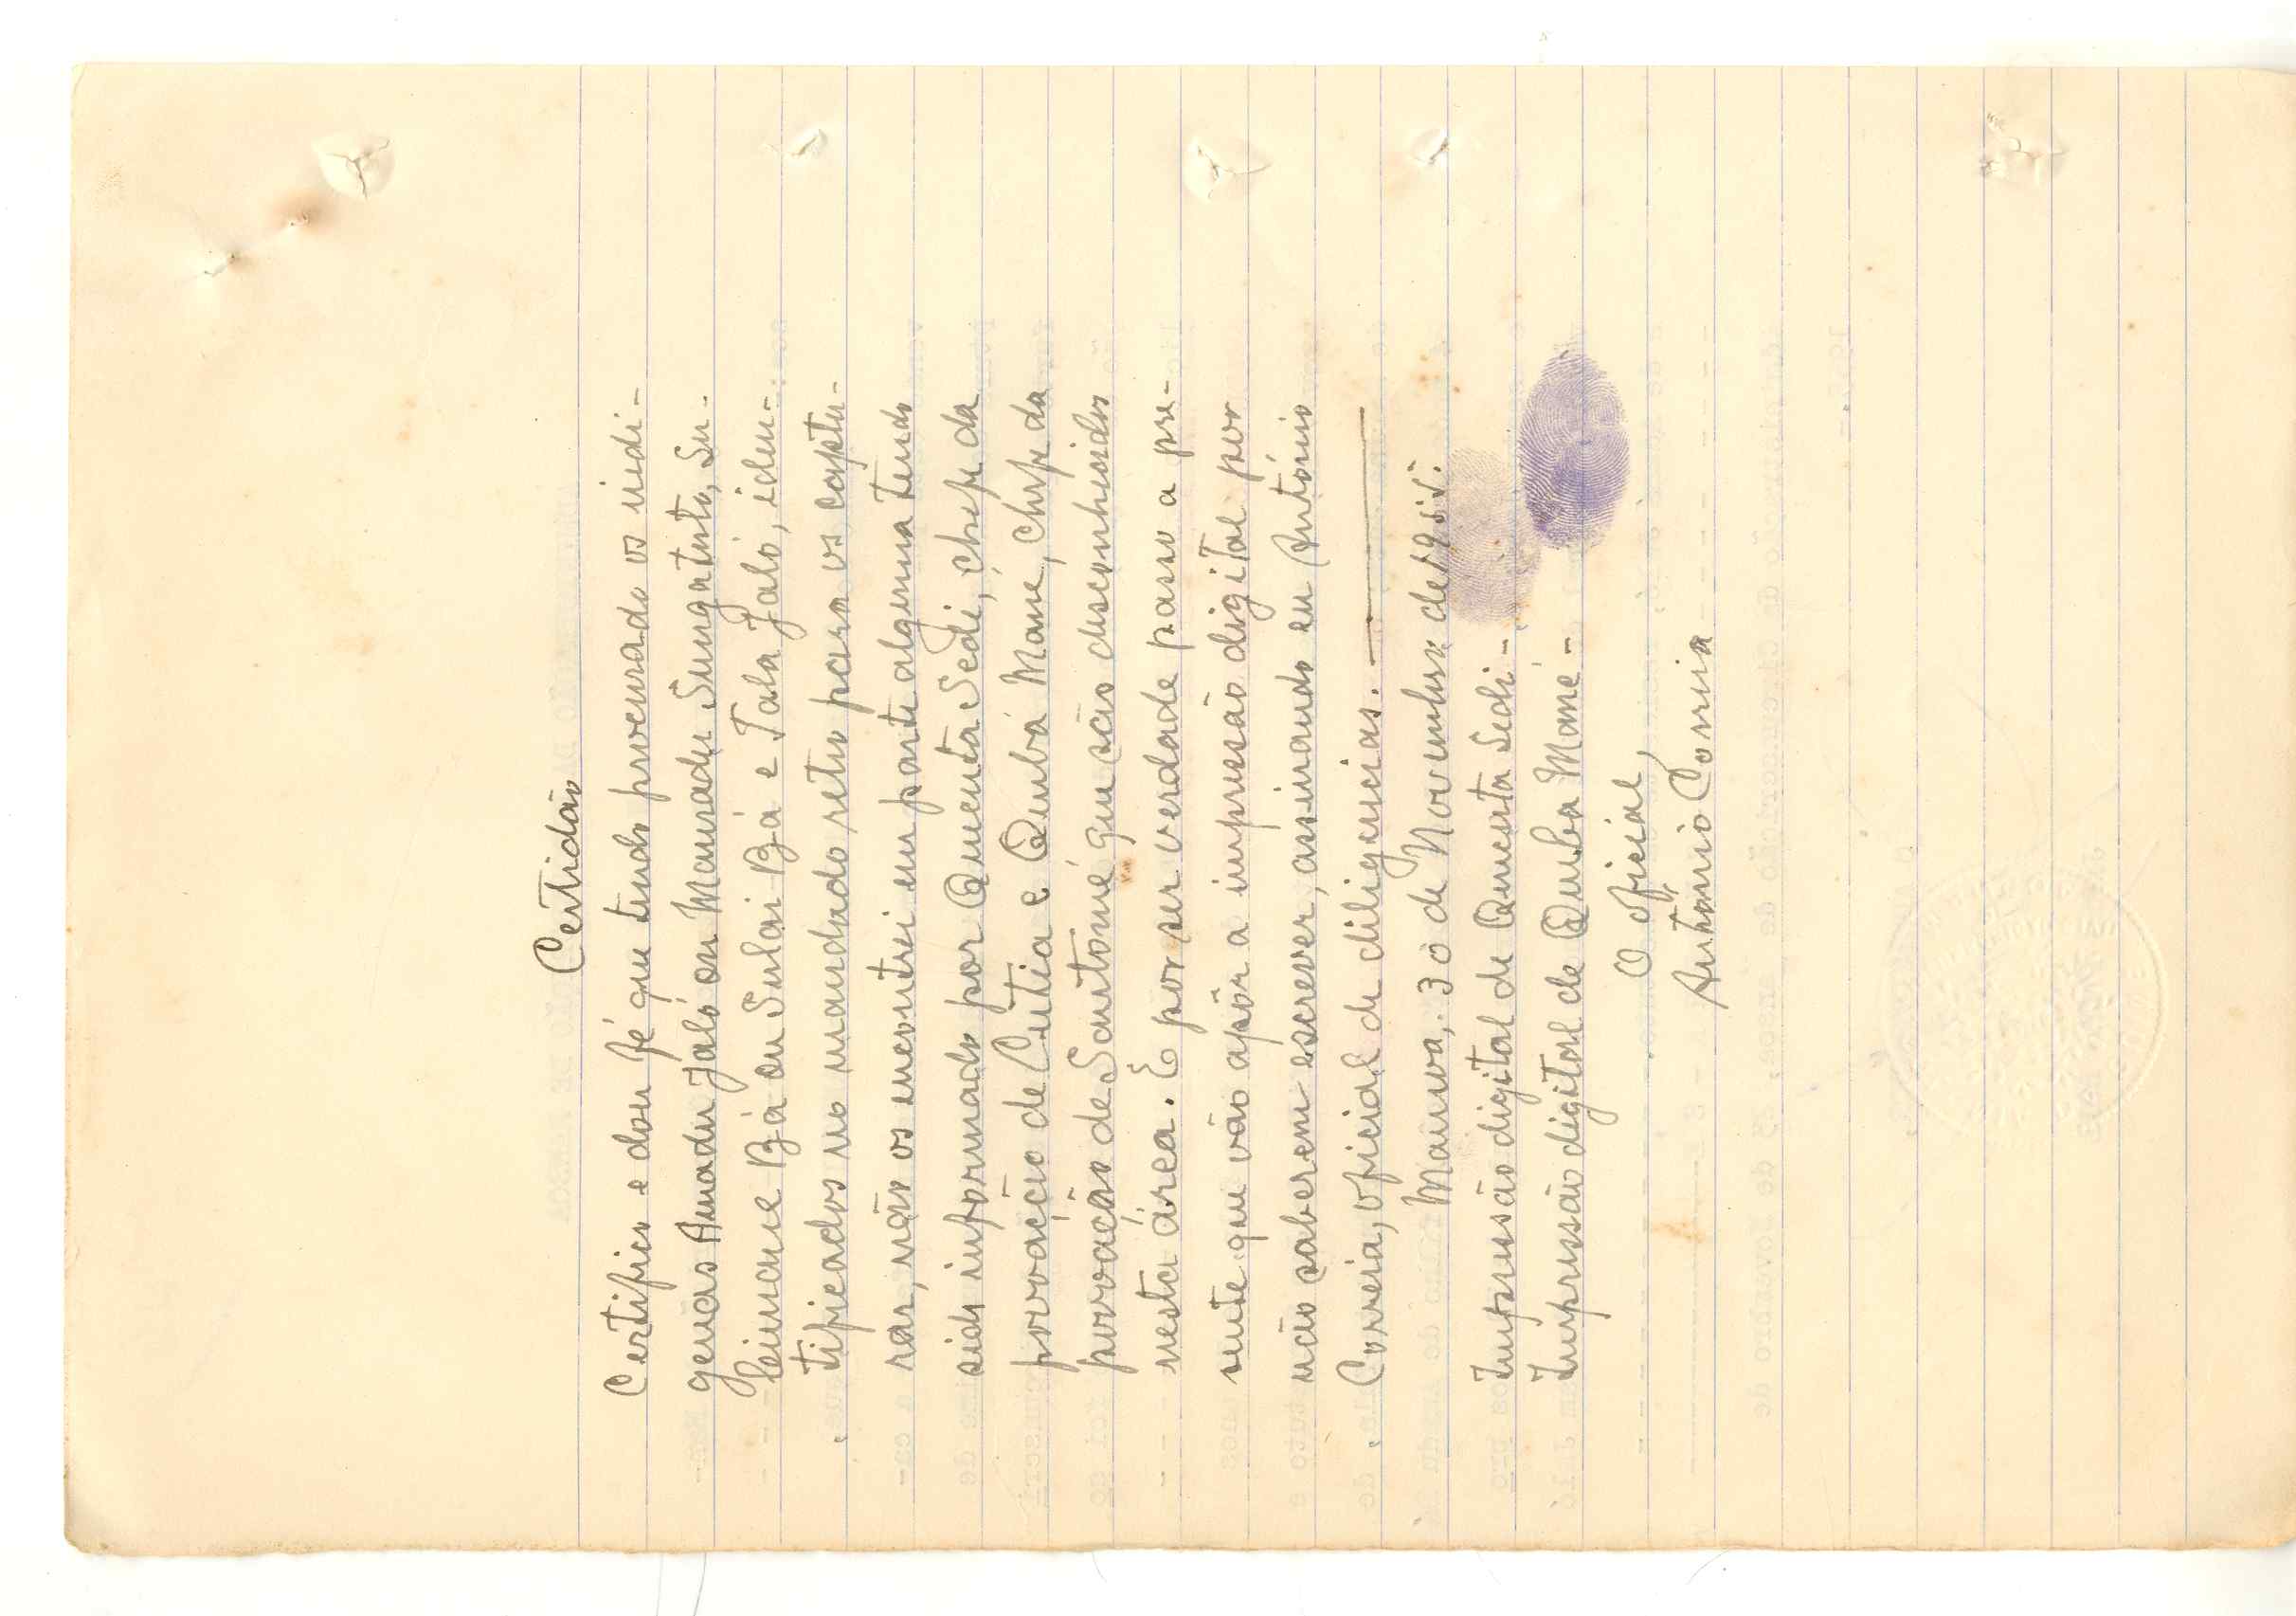 Certidão
Certifico e dou fé que tendo procurado os indi-
genas Amadu Jaló ou Mamadu Sungatuto, Su-
leimane Bá ou Sulai Bá e Tala Jaló, iden-
tificados no mandado retro para os captu-
rar, não os encontrei em parte alguma tendo
sido informado por Quenta Sedi, chefe da
povoação de Cutia e Qumbá Mané, chefe da
povoação de Santomé que são desconhecidos
nesta área. E por ser verdade passo a pre-
sente que vão apôr a impressão digital por
não saberem escrever, assinando eu António
Correia, oficial de diligencias.
Mansoa, 30 de Novembro de 1955.
Impressão digital de Quenta Sedi -
Impressão digital de Qumba Mané -
O oficial,
António Correia